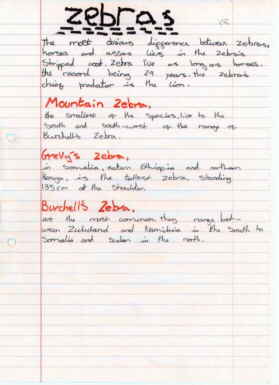 zebras
The most obvious difference between zebras,
horses and asses lies in the zebra's
Stripped coat. Zebra live as long as horses.
the record being 29 years. the zebra's
chief predator is the lion.
Mountain Zebra,
the smallest of the species, live to the
South and south-west of the range of
Burchell's Zebra.
Grevy's zebra,
in Somalia, eastern Ethiopia and northern
Kenya, is the tallest zebra, standing
135cm at the shoulder.
Burchell's Zebra,
are the most common, they range bet-
ween Zululand and Namibia in the South to
Somalia and Sudan in the north.